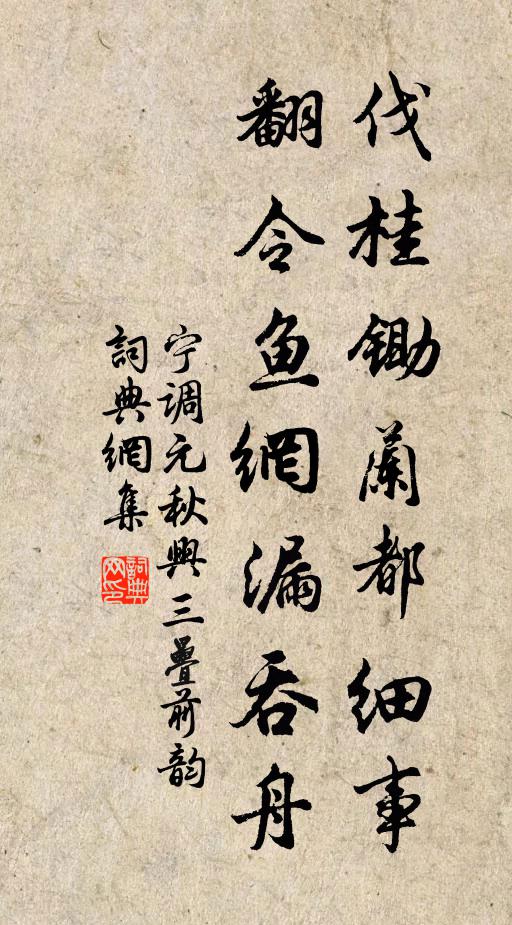 伐桂锄蘭都细事
翻令鱼網漏吞舟
宁调元秋興三疊前韵
詞典網集
詞典网印